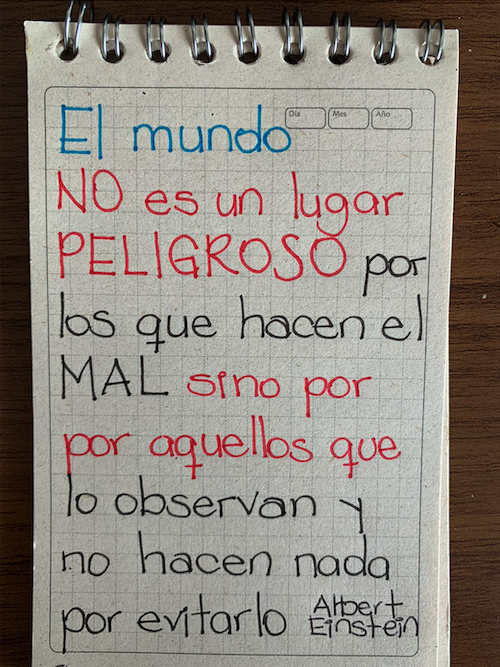 Día Mes Año
El mundo
NO es un lugar
PELIGROSO por
los que hacen el
MAL sino por
por aquellos que
lo observan y
no hacen nada
por evitarlo Albert
Einstein